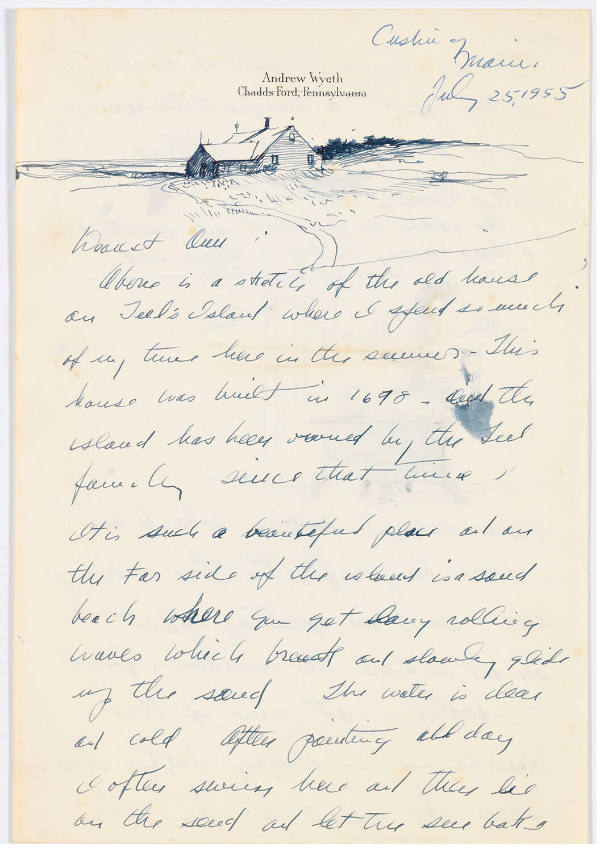 Cushing
Maine.
July 25, 1955
Andrew Wyeth
Chadds Ford, Pennsylvania
Dearest Ann
Above is a sketch of the old house
on Teel's Island where I spend so much
of my time here in the summer - This
house was built in 1698 - and the
island has been owned by the Teel
family since that time,
It is such a beautiful place and on
the far side of the island is a sand
beach where you get long rolling
waves which break and slowly glide
up the sand The water is clear
and cold After painting all day
I often swim here and then lie
on the sand and let the sun bake